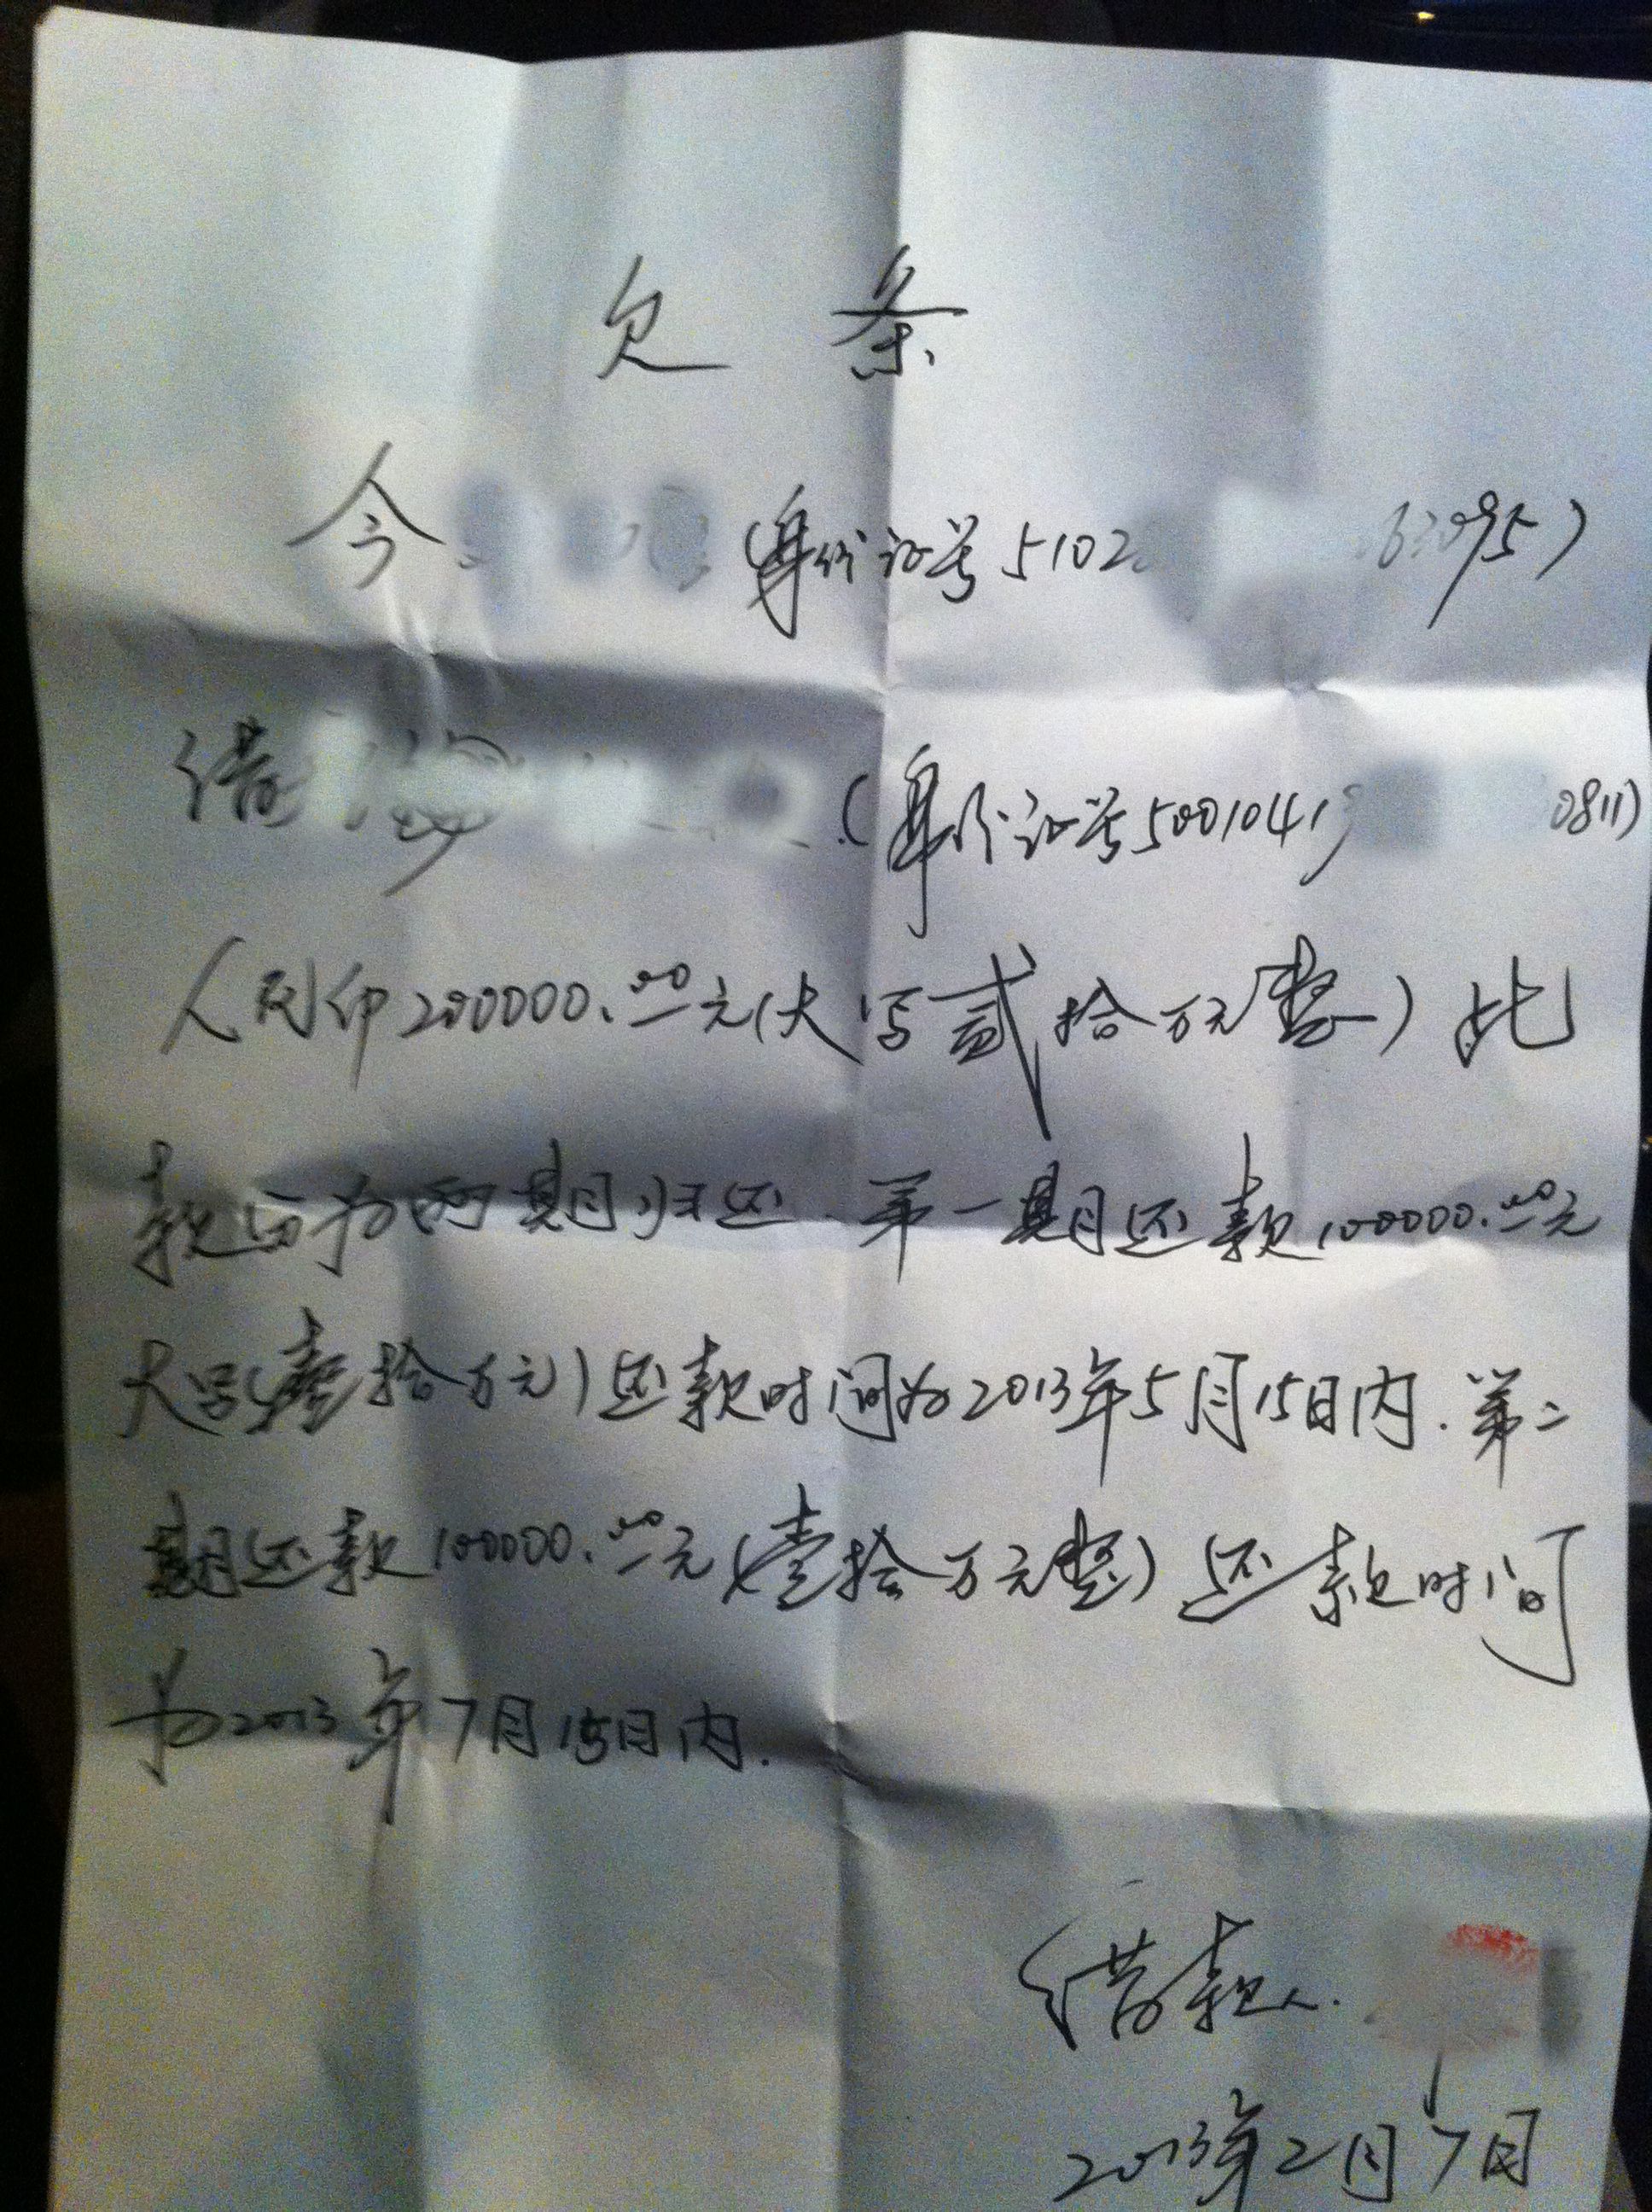 欠条
今 (身份证号5102 3095)
借 (身份证号50010419 0811)
人民币200000.00元(大写贰拾万元整)此
款分为两期归还.第一期还款100000.00元
大写(壹拾万元)还款时间为2013年5月15日内.第二
期还款100000.00元(壹拾万元整)还款时间
为2013年7月15日内.
借款人.
2013年2月7日